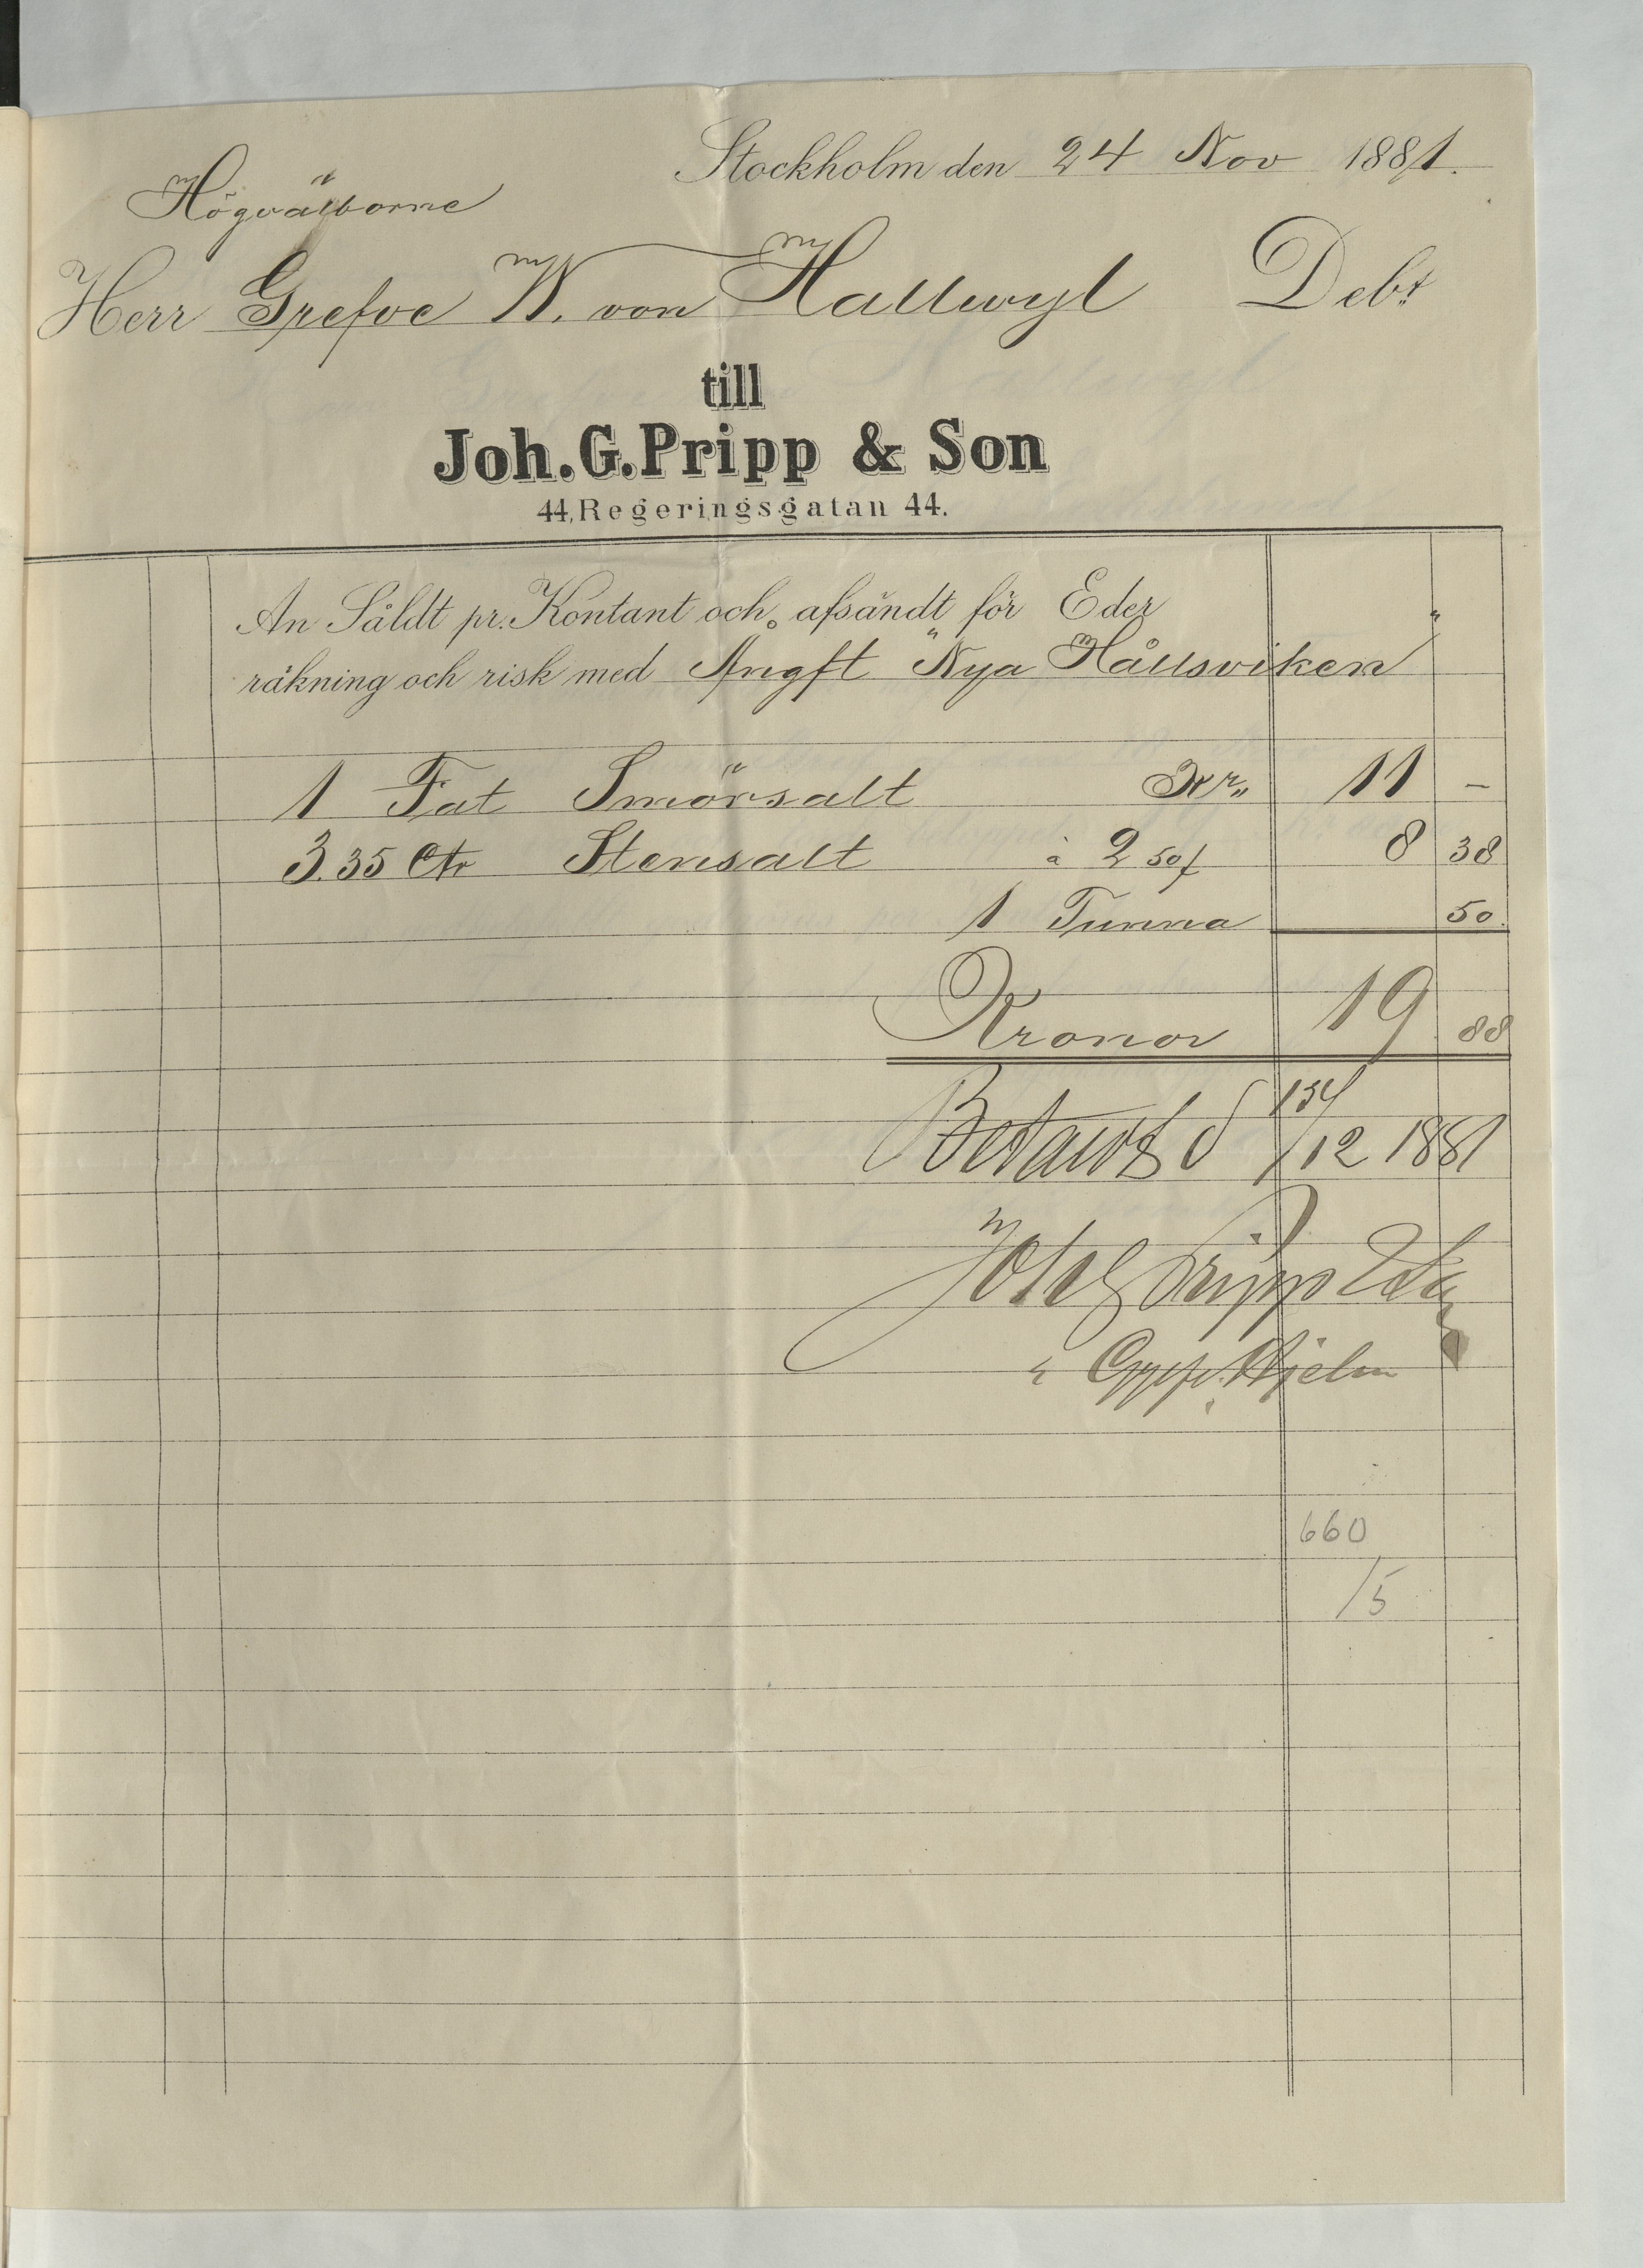 Stockholm den 24 Nov 1881.
Högvälborne
Herr Grefve W. von Hallwyl Debt
till
Joh. G. Pripp & Son
44, Regeringsgatan 44.
An Såldt pr. Kontant och afsändt för Eder
räkning och risk med Ångft "Nya Hållsviken"
1 Fat Smörsalt Kr„ 11 –
3.35 Ctr Stensalt à 2 50/ 8 38
1 Tunna 50.
Kronor 19 88
Betaldt d /12 1881
Joh G Pripp & Son
Hjelm
660
/5